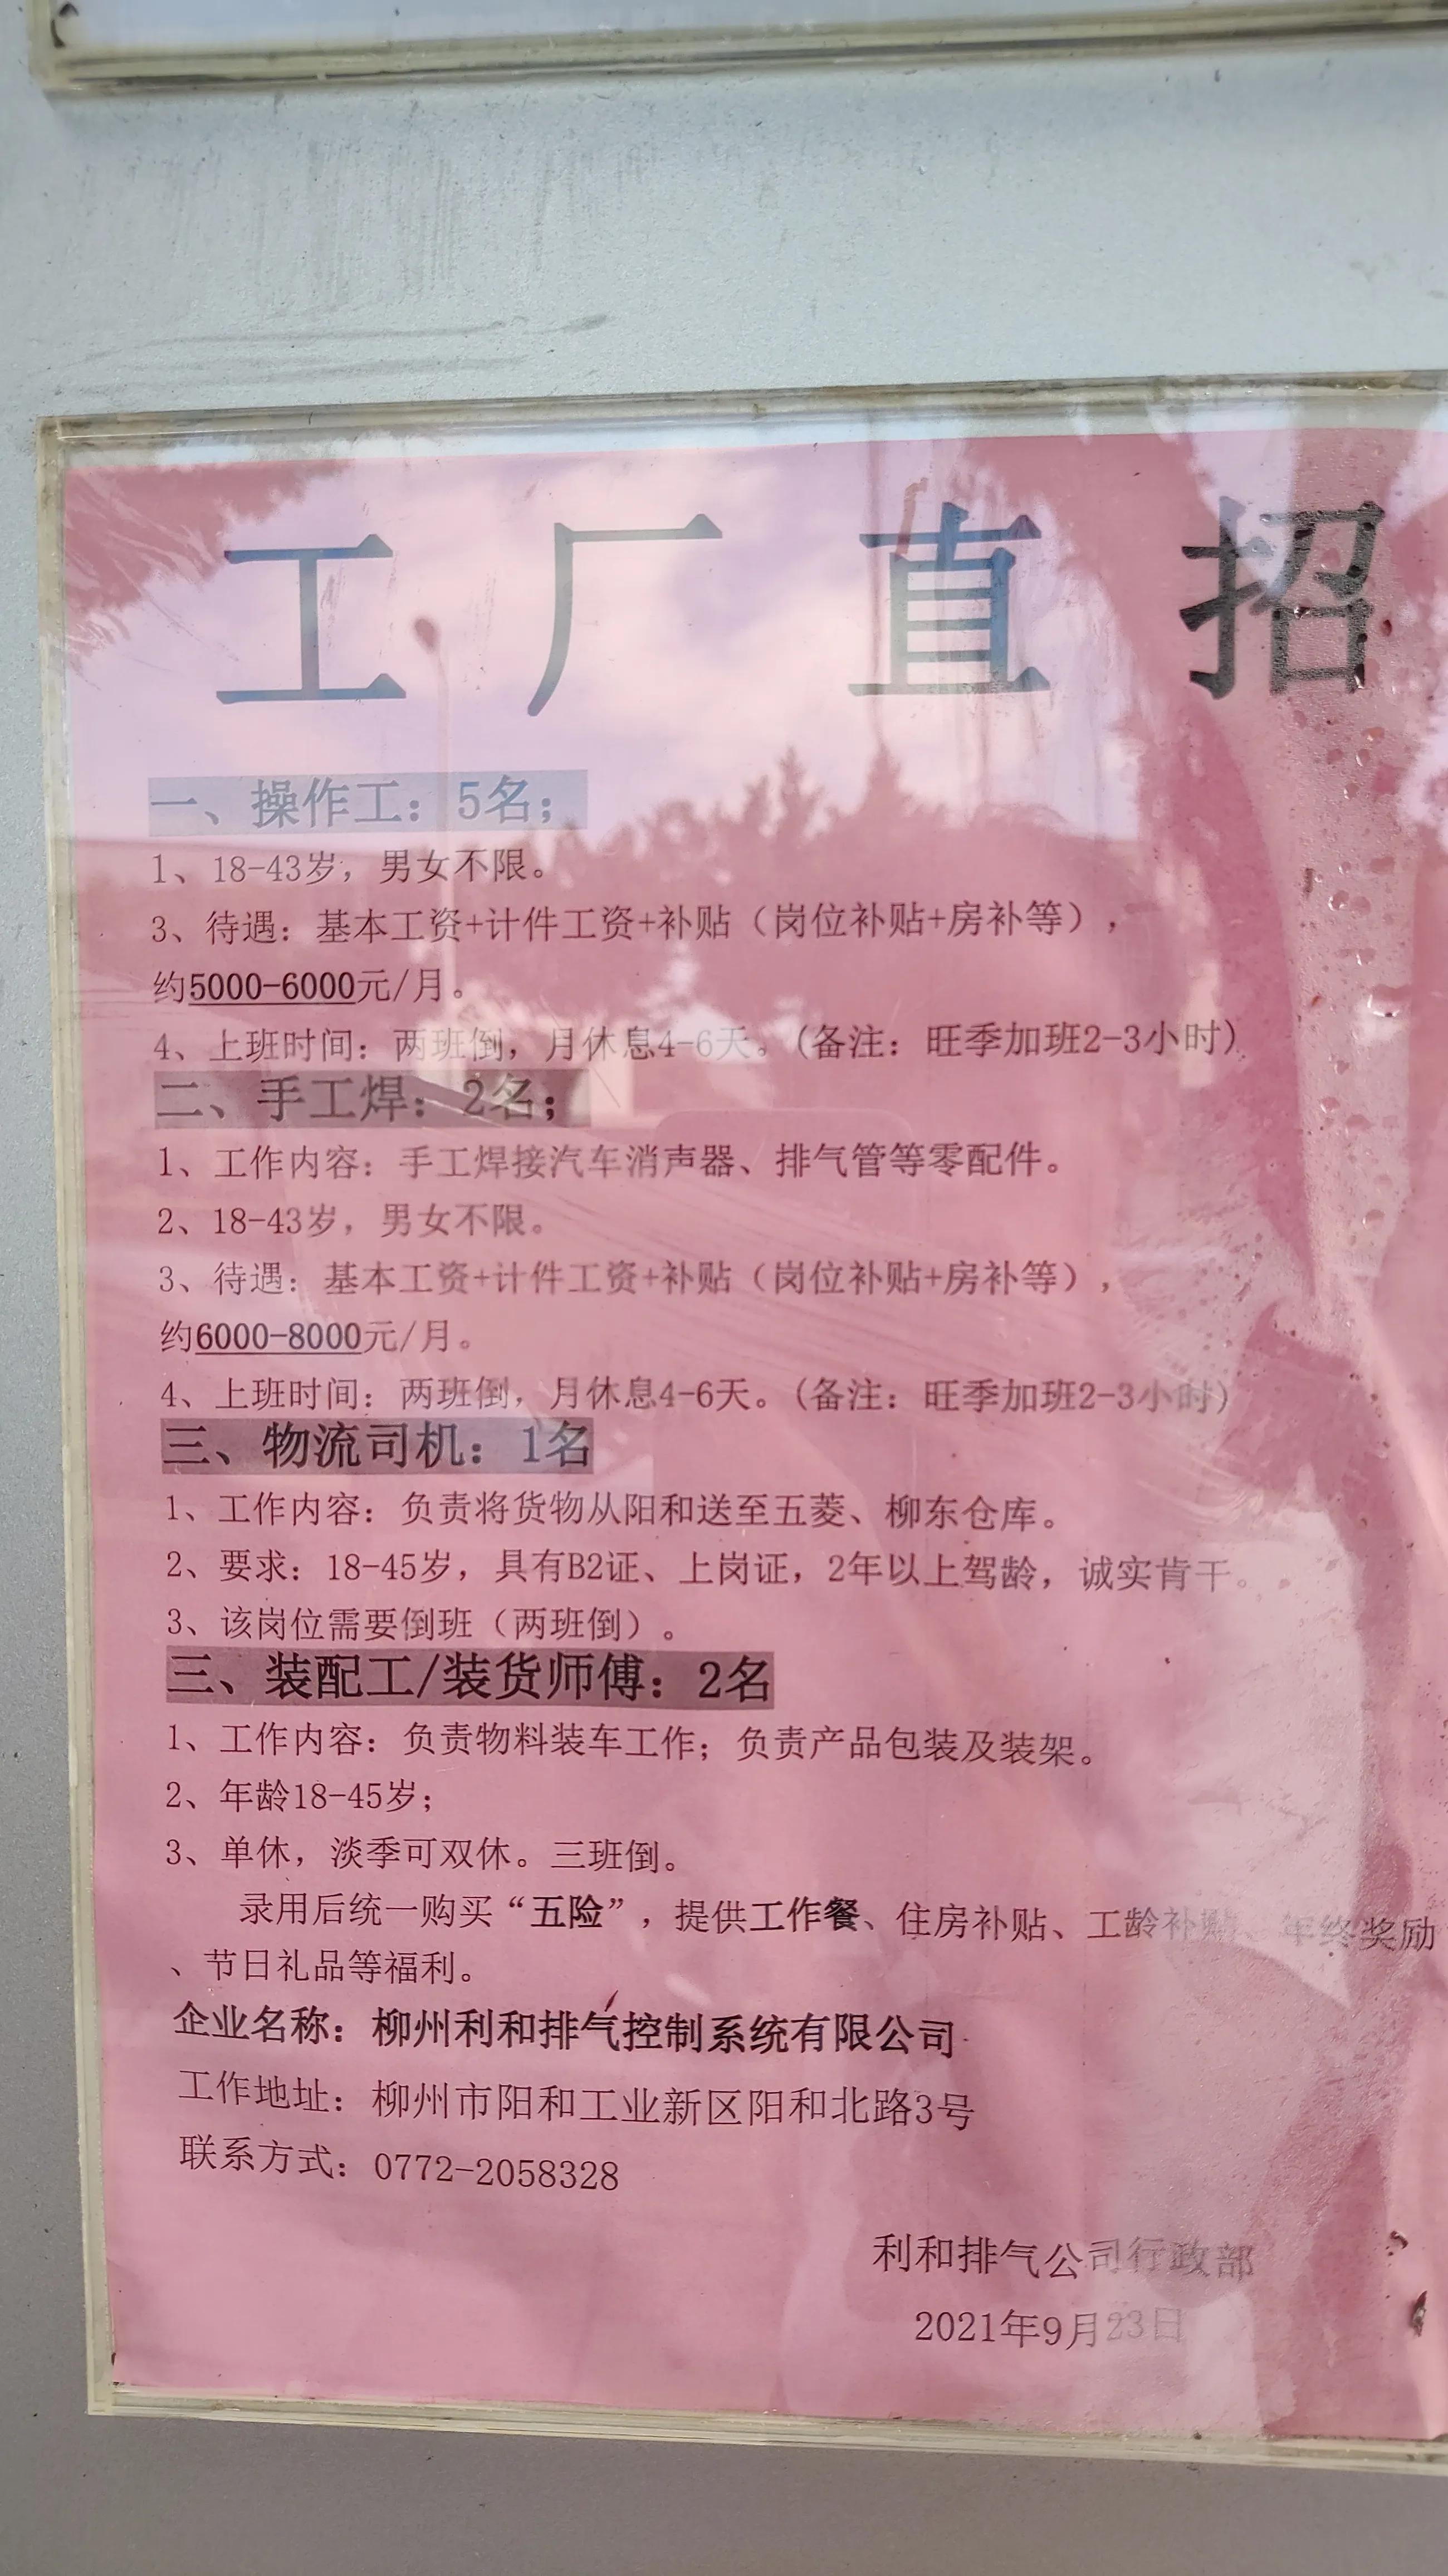 工厂直招
一、操作工：5名；
1、18-43岁，男女不限。
3、待遇：基本工资+计件工资+补贴（岗位补贴+房补等），
约5000-6000元/月。
4、上班时间：两班倒，月休息4-6天。(备注：旺季加班2-3小时)
二、手工焊：2名；
1、工作内容：手工焊接汽车消声器、排气管等零配件。
2、18-43岁，男女不限。
3、待遇：基本工资+计件工资+补贴（岗位补贴+房补等），
约6000-8000元/月。
4、上班时间：两班倒，月休息4-6天。(备注：旺季加班2-3小时)
三、物流司机：1名
1、工作内容：负责将货物从阳和送至五菱、柳东仓库。
2、要求：18-45岁，具有B2证、上岗证，2年以上驾龄，诚实肯干。
3、该岗位需要倒班（两班倒）。
三、装配工/装货师傅：2名
1、工作内容：负责物料装车工作；负责产品包装及装架。
2、年龄18-45岁；
3、单休，淡季可双休。三班倒。
录用后统一购买“五险”，提供工作餐、住房补贴、工龄补贴、年终奖励
、节日礼品等福利。
企业名称：柳州利和排气控制系统有限公司
工作地址：柳州市阳和工业新区阳和北路3号
联系方式：0772-2058328
利和排气公司行政部
2021年9月23日